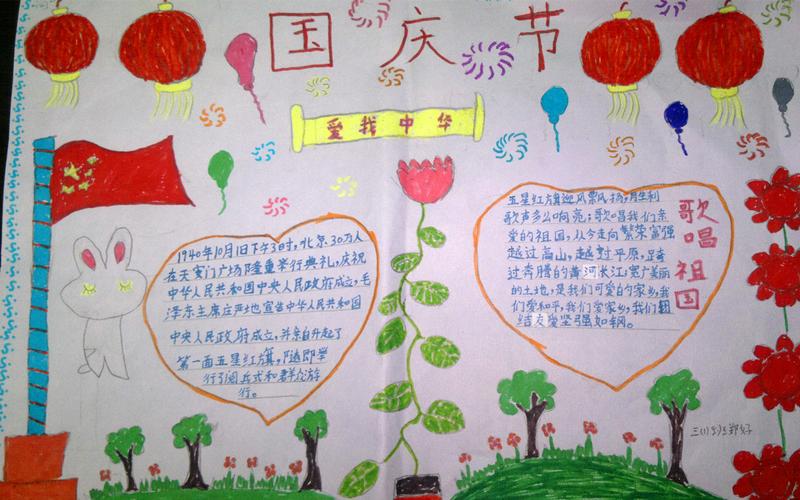 国庆节
爱我中华
1940年10月1日下午3时,北京30万人
在天安门广场隆重举行典礼,庆祝
中华人民共和国中央人民政府成立,毛
泽东主席庄严地宣告中华人民共和国
中央人民政府成立,并亲自升起了
第一面五星红旗,随即举
行了阅兵式和群众游
行。
歌唱祖国
五星红旗迎风飘扬,胜利
歌声多么响亮;歌唱我们亲
爱的祖国,从今走向繁荣富强
越过高山,越过平原,跨
过奔腾的黄河长江;宽广美丽
的土地,是我们可爱的家乡,我
们爱和平,我们爱家乡,我们团
结友爱坚强如钢。